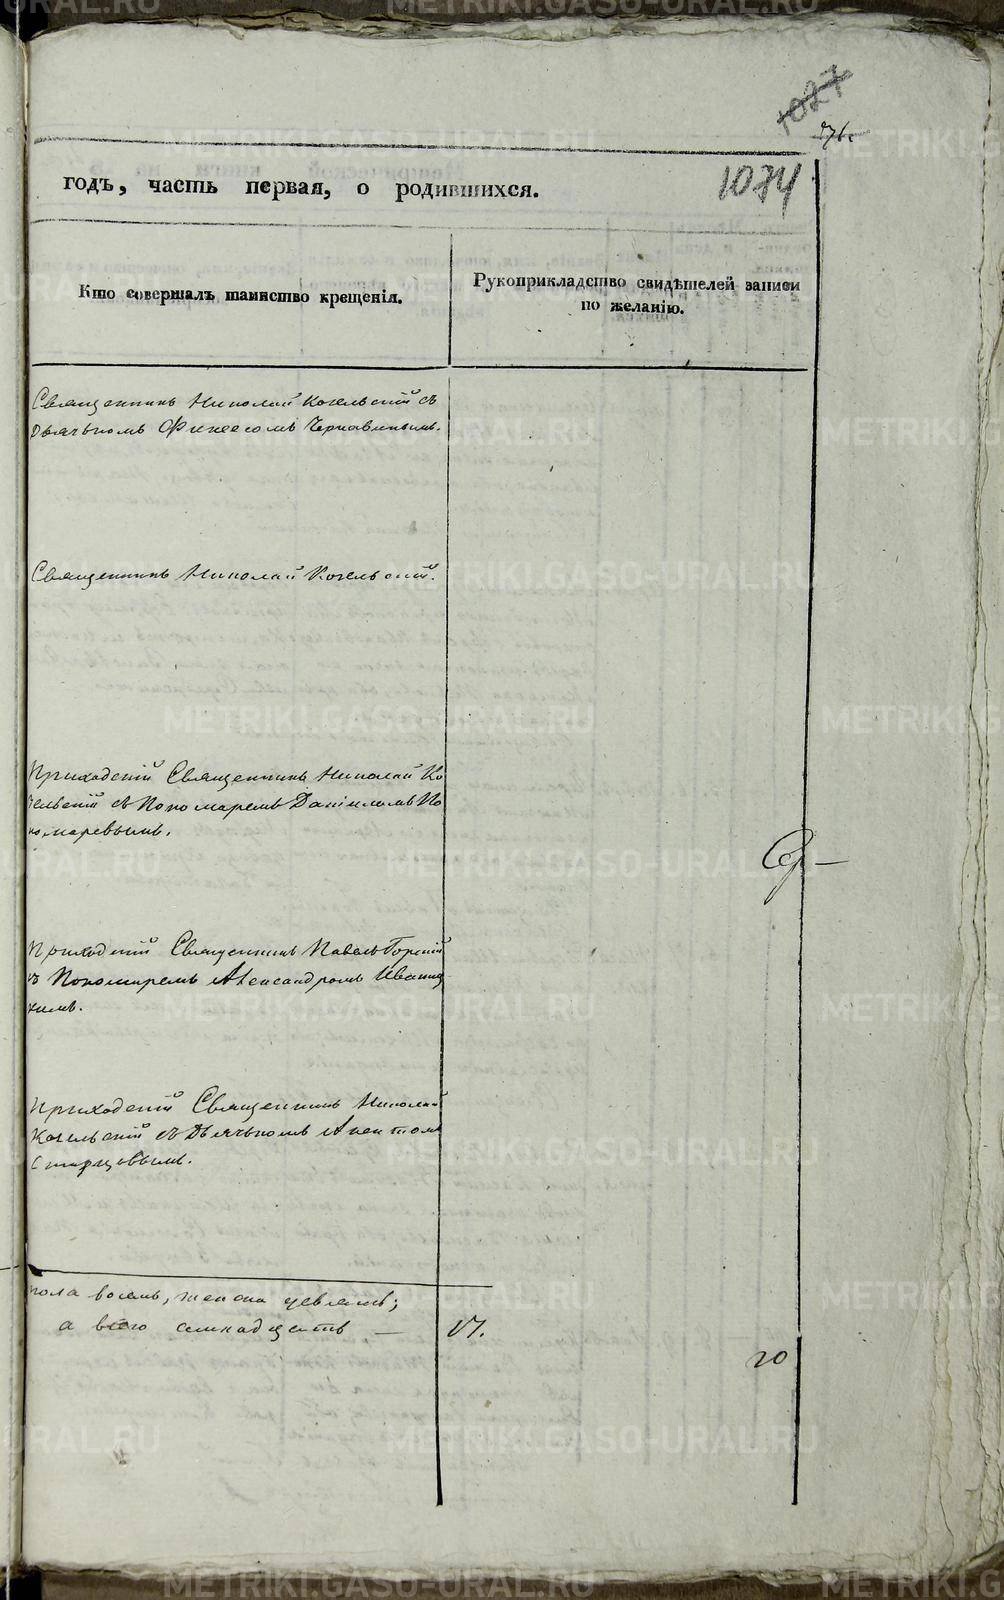 1027
1074
годъ, часть первая, о родившихся.
Кто совершалъ таинство крещенія.
Рукоприкладство свидѣтелей записи
по желанію.
Священникъ Николай Кокельскій съ
Дьячкомъ Финеесомъ Чернавинымъ.
Священникъ Николай Кокельскій.
Приходскій Священникъ Николай Ко
кельскій съ Пономаремъ Даніиломъ По
номаревымъ.
Приходскій Священникъ Павелъ Горскій
съ Пономаремъ Александромъ Иваниц
кимъ.
Приходскій Священникъ Николай
Кокельскій съ Дьячкомъ
Старцовымъ.
пола восемь, женска девять;
а всего семнадцать — 17.
20
METRIKI.GASO-URAL.RU